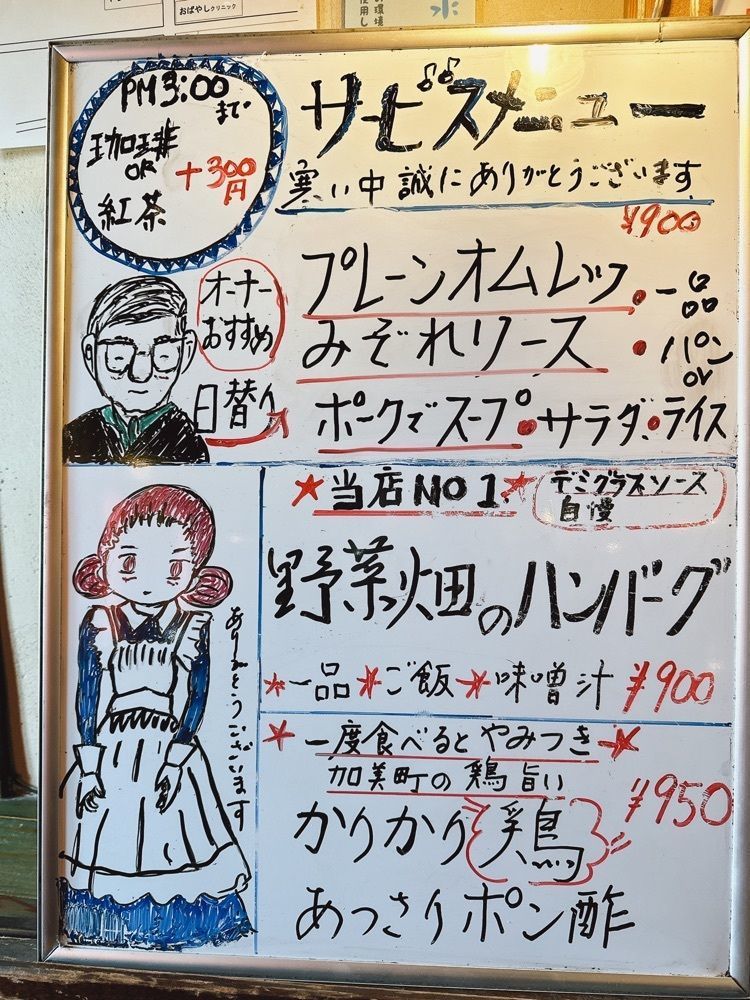 おばやしクリニック
水
PM3:00
まで
珈琲
OR
紅茶
+300円
サービスメニュー
寒い中誠にありがとうございます
¥900
オーナー
おすすめ
日替り
プレーンオムレツ・一品
みぞれソース・パン
or
ポークでスープ・サラダ・ライス
★当店NO1.★
デミグラスソース
自慢
野菜畑のハンバーグ
★一品★ご飯★味噌汁 ¥900
ありがとうございます
★一度食べるとやみつき★
加美町の鶏旨い
¥950
かりかり鶏
あっさりポン酢